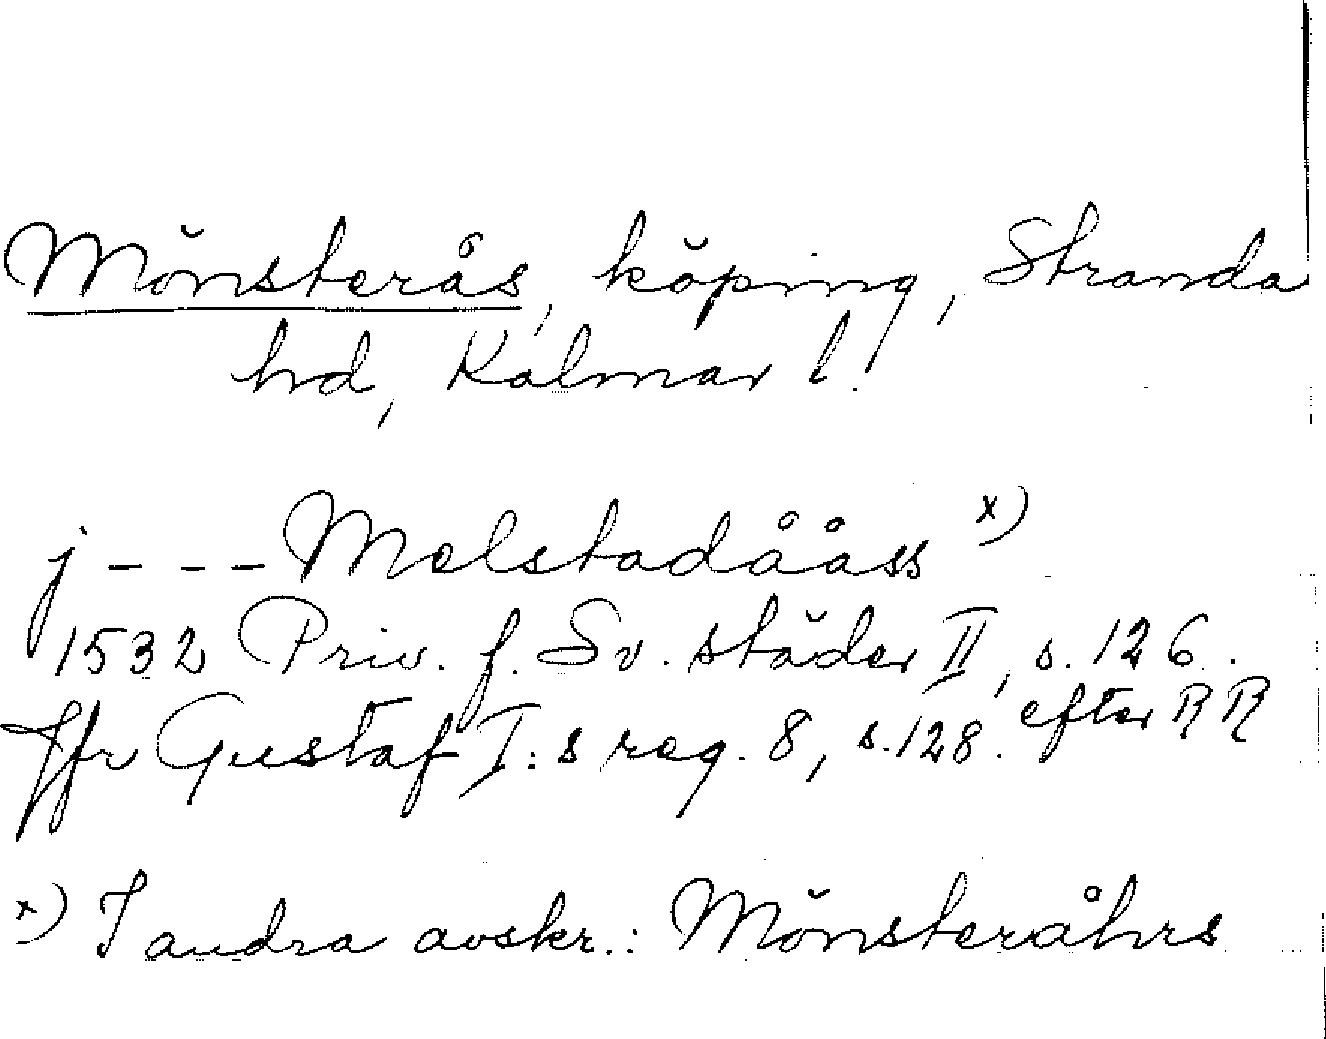 Mönsterås, köping, Stranda
hd, Kalmar l.
j - - - Molstadååss x)
1532 Priv. f. Sv. städer II, s. 126.
Jfr Gustaf I:s reg. 8, s. 128. efter RR
x) I andra avskr.: Mönsteråhrs